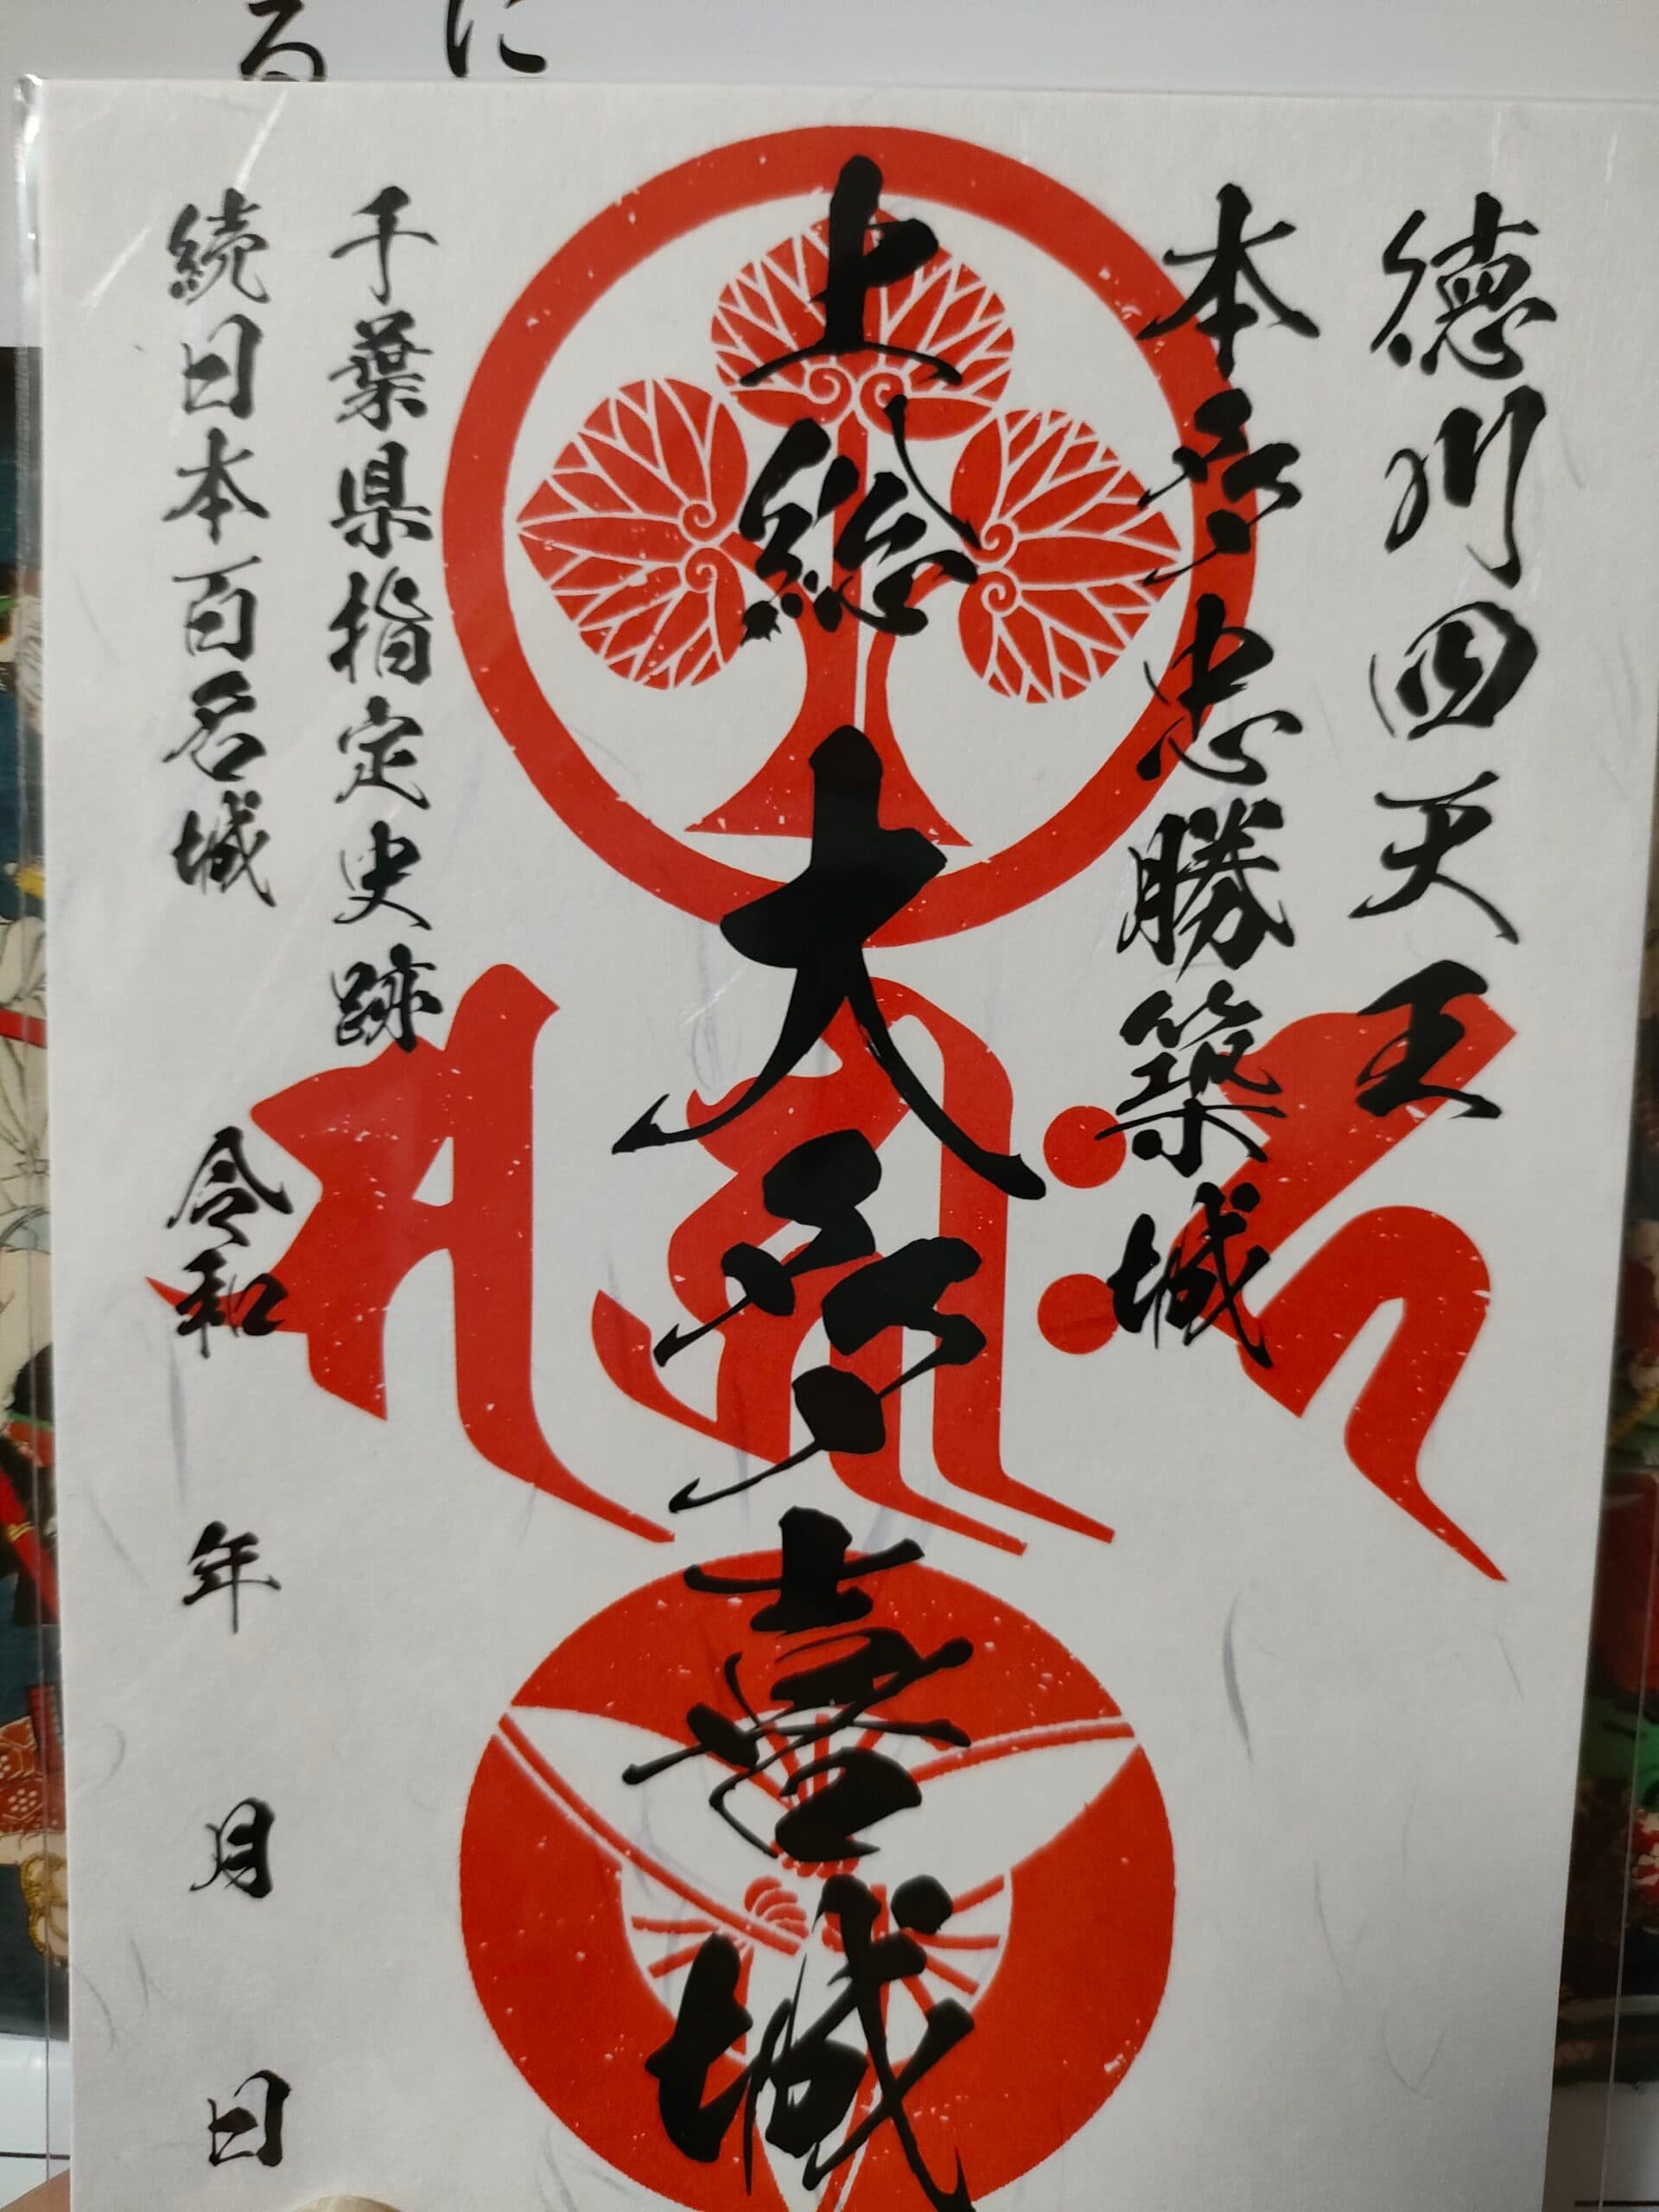 に
る
徳川四天王
本多忠勝築城
上総大多喜城
千葉県指定史跡
続日本百名城
令和 年 月 日